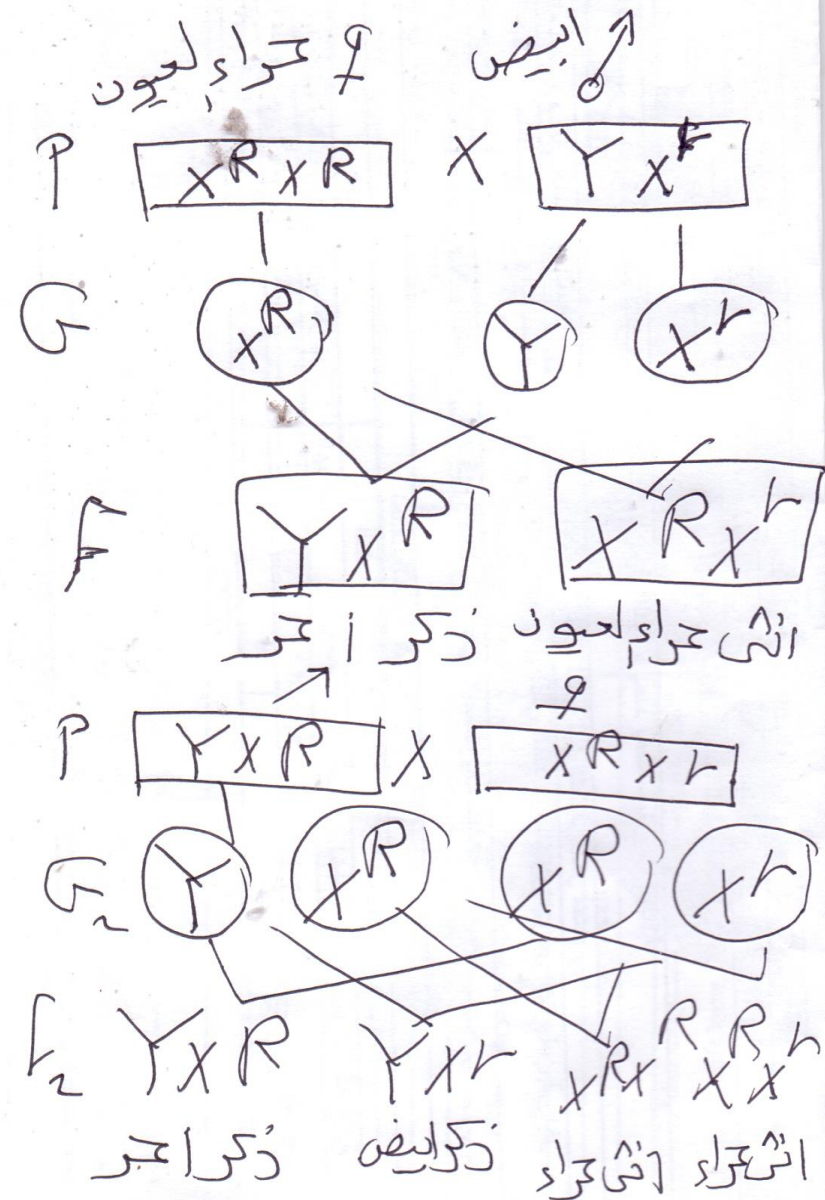 ♀ حمراء لعيون ابيض ♂
P X^R X^R X Y X^r
G X^R Y X^r
F Y X^R X^R X^r
ذكر احمر انثى حمراء لعيون
♀
P Y X R X X^R X r
G₂ Y X^R X^R X^r
F₂ Y X R Y X r X^R X^R X^R X^r
ذكر احمر ذكر ابيض انثى حمراء انثى حمراء